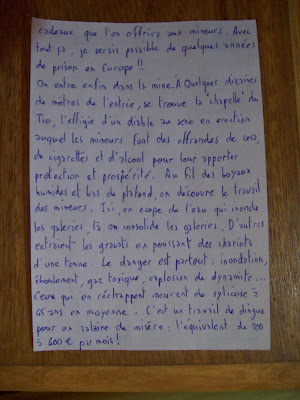 cadeaux que l'on offrira aux mineurs. Avec
tout ça, je serais passible de quelques années
de prison en Europe !!
On entre enfin dans la mine. A quelques dizaines
de mètres de l'entrée, se trouve la "chapelle" du
Tio, l'effigie d'un diable au sexe en érection
auquel les mineurs font des offrandes de coca,
de cigarettes et d'alcool pour leur apporter
protection et prospérité. Au fil des boyaux
humides et bas de plafond, on découvre le travail
des mineurs. Ici, on écope de l'eau qui inonde
les galeries, là on consolide les galeries. D'autres
extraient les gravats en poussant des chariots
d'une tonne. Le danger est partout : inondation,
éboulement, gaz toxique, explosion de dynamite...
Ceux qui en réchappent meurent de sylicose à
45 ans en moyenne. C'est un travail de dingue
pour un salaire de misère : l'équivalent de
à 400 € par mois !